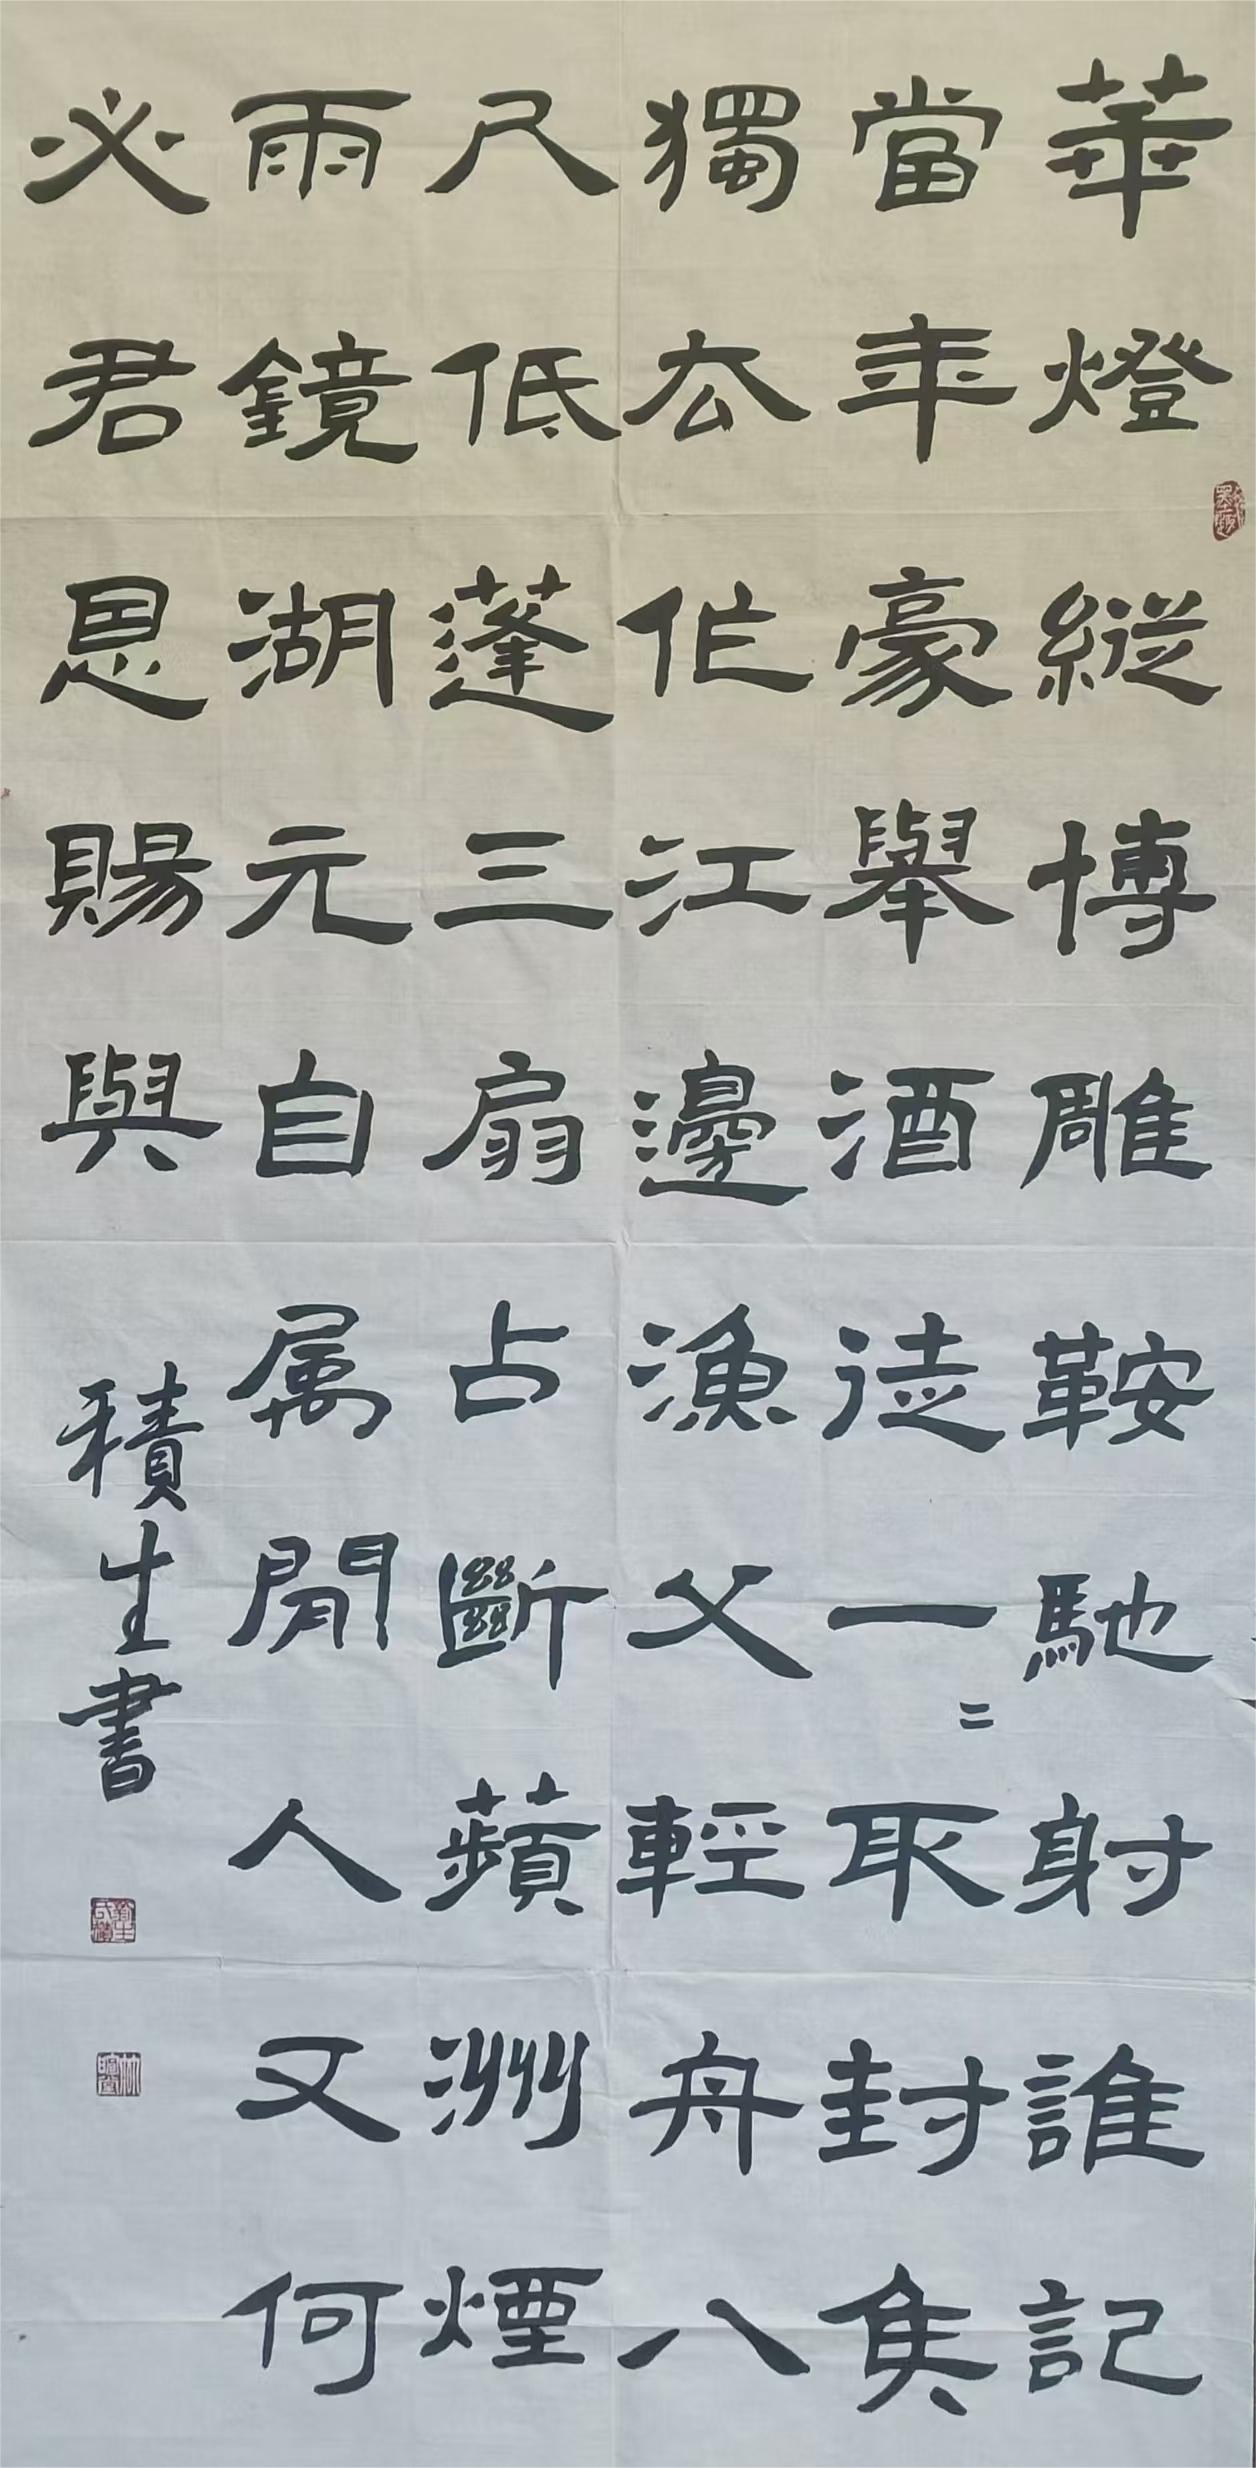 華燈縱博雕鞍馳射誰記
當年豪舉酒徒一〻取封侯
獨去作江邊漁父輕舟八
尺低蓬三扇占斷蘋洲煙
雨鏡湖元自属閒人又何
必君恩賜與
積生書